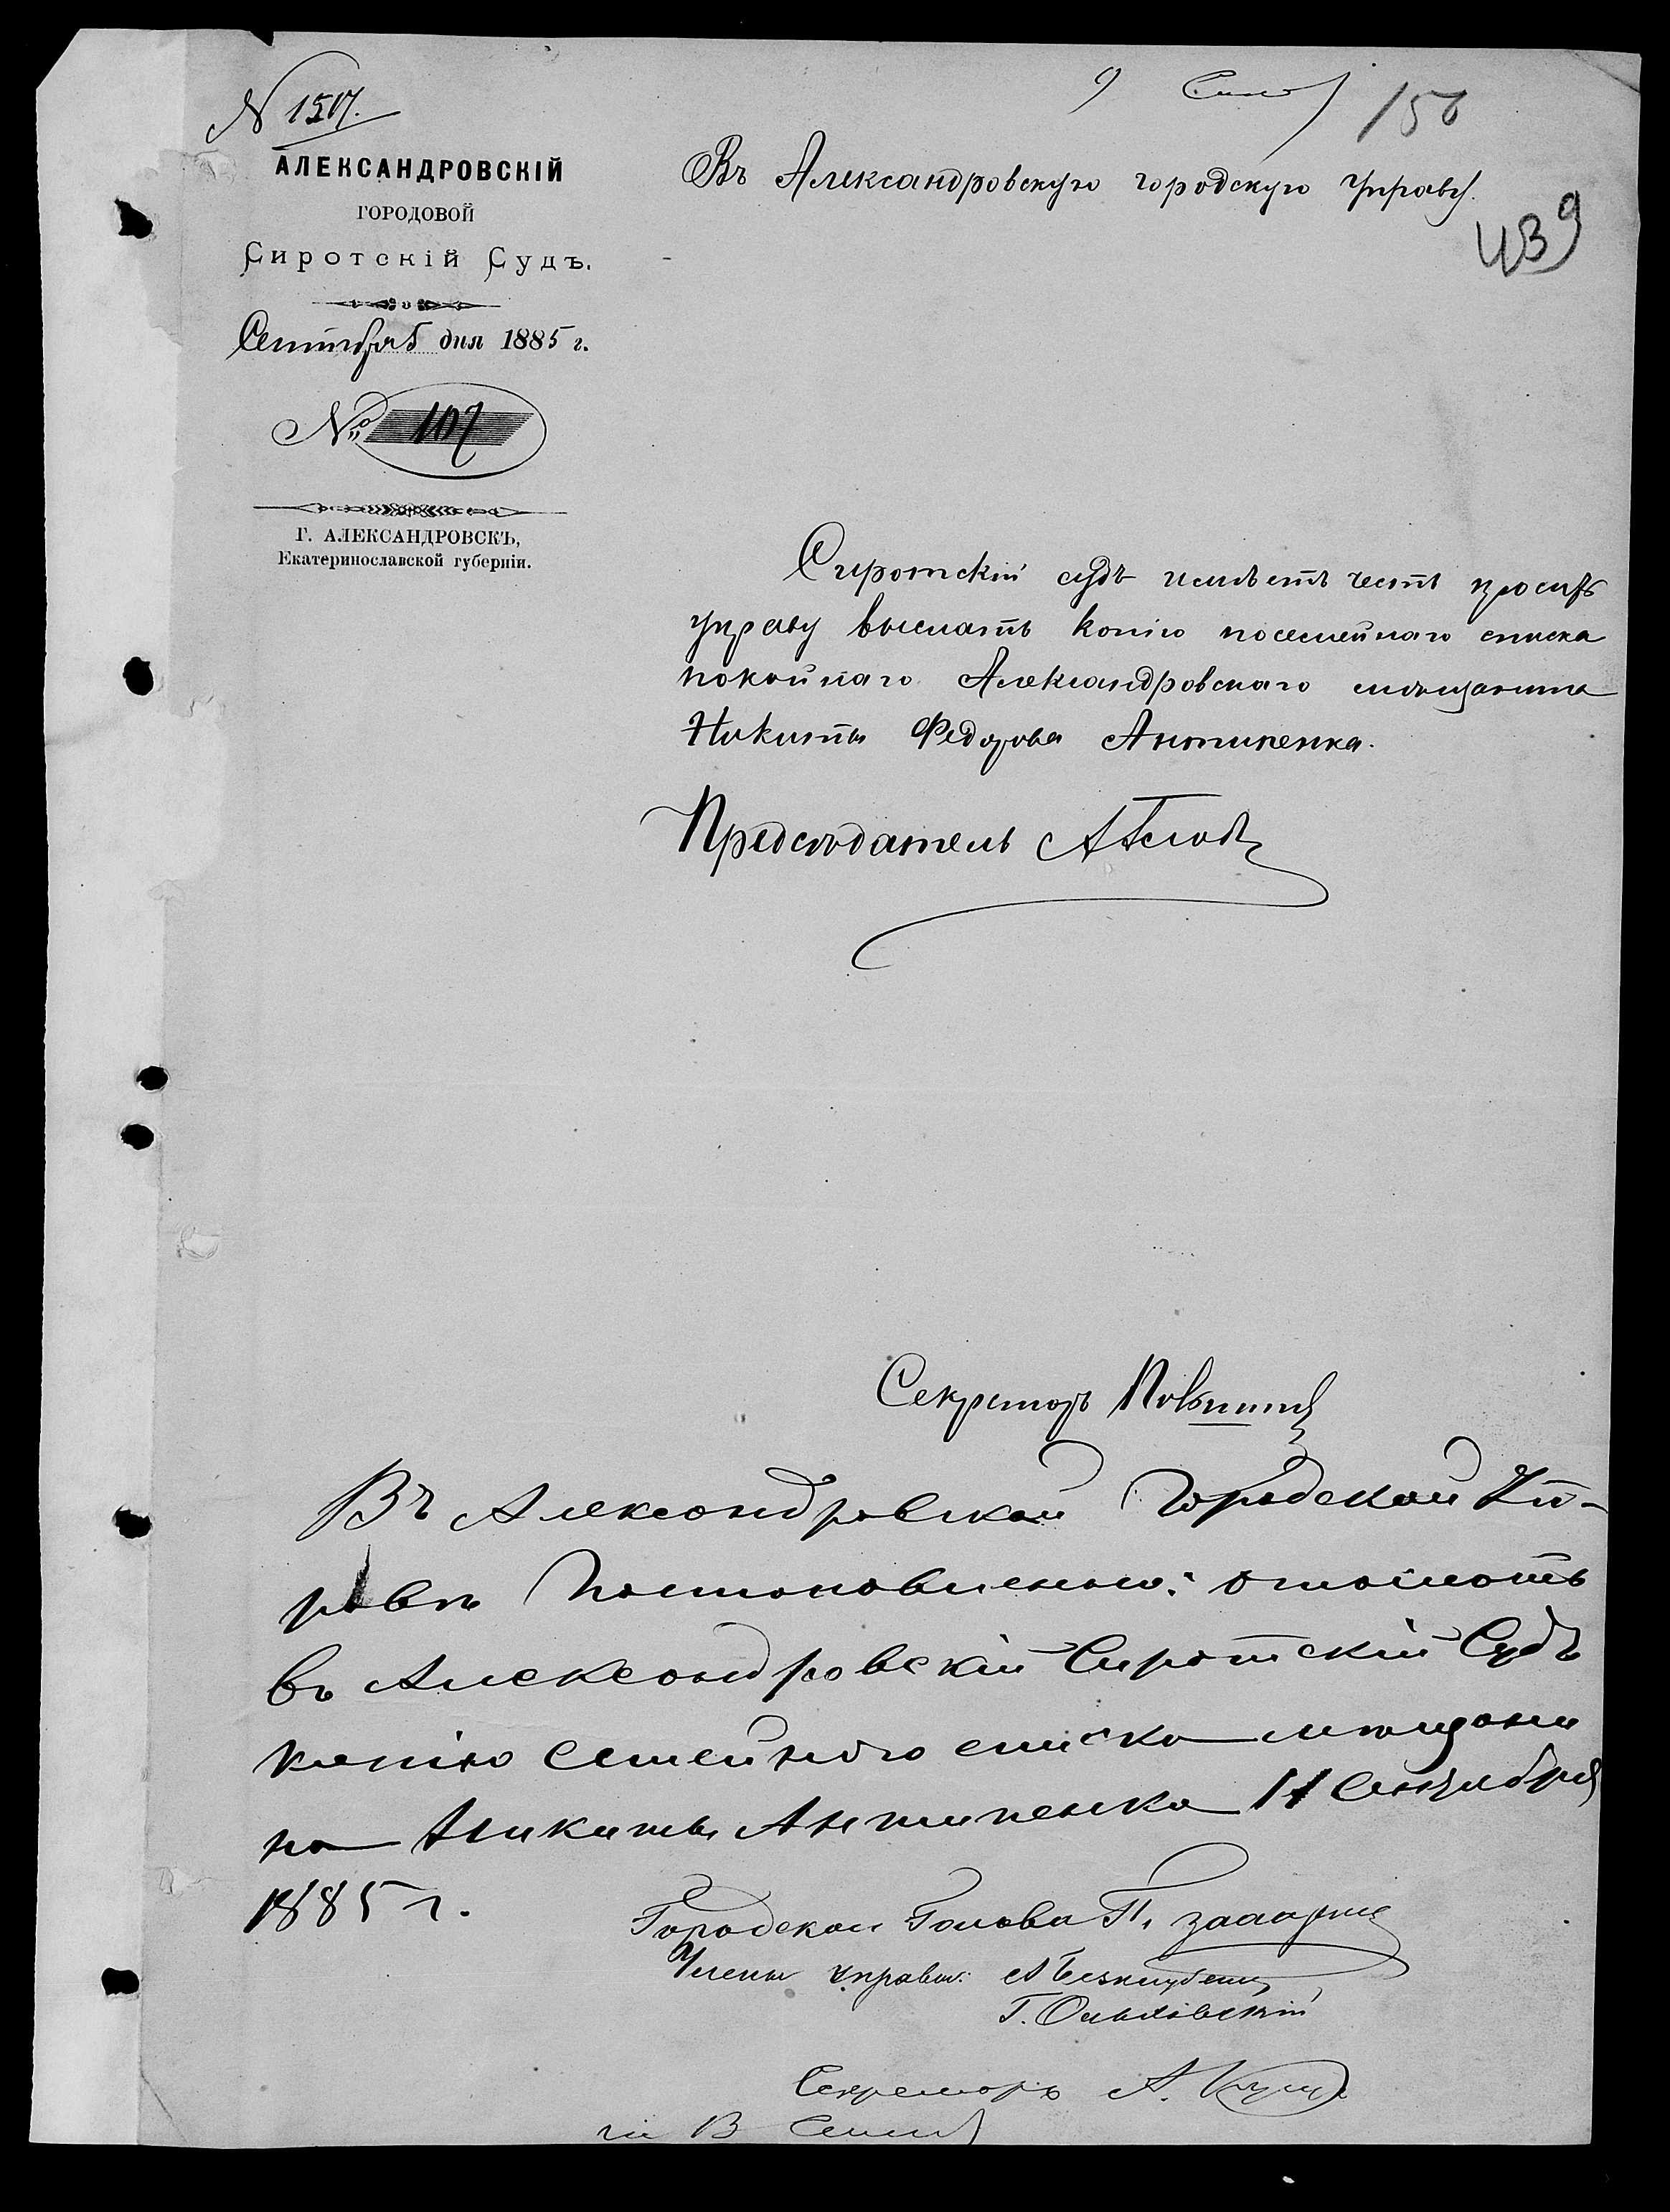 № 1517.
9 Сент
156
АЛЕКСАНДРОВСКІЙ
ГОРОДОВОЙ
Сиротскій Судъ.
Сентября 5 дня 1885 г.
№ 107
Г. АЛЕКСАНДРОВСКЪ,
Екатеринославской губерніи.
Въ Александровскую городскую управу.
439
Сиротскій судъ имѣетъ честь просить
управу выслать копію посемейнаго списка
покойнаго Александровскаго мѣщанина
Никиты Федорова Антипенка.
Предсѣдатель
Секретарь
Въ Александровской Городской Уп-
равѣ Постановлено: отослать
въ Александровскій Сиротскій Судъ
копію семейнаго списка мѣщани
на Никиты Антипенка 11 Сентября
1885 г.
Городской Голова
Члены управы:
Г. Ольховскій
Секретарь А.